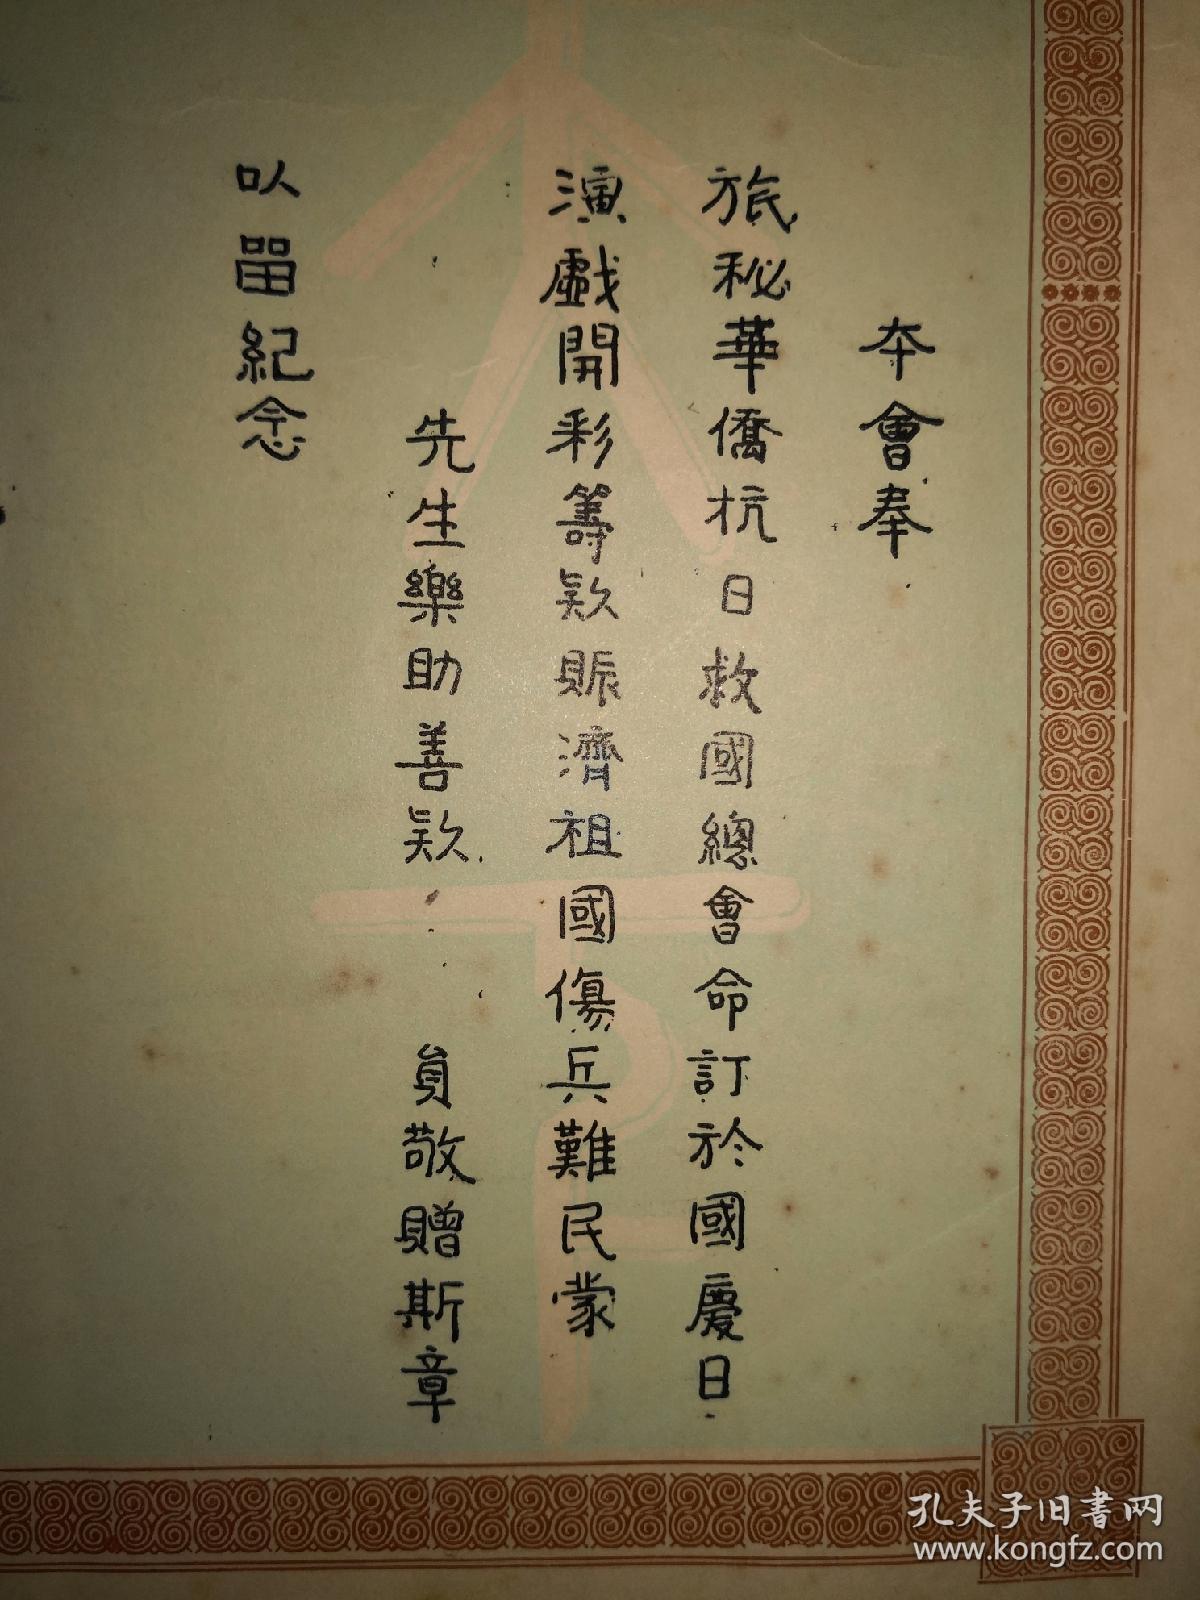 夲會奉
旅秘華僑抗日救國總會命訂於國慶日
演戲開彩籌欵賑濟祖國傷兵難民蒙
先生樂助善欵 員敬贈斯章
以畱紀念
孔夫子旧書网
www.kongfz.com